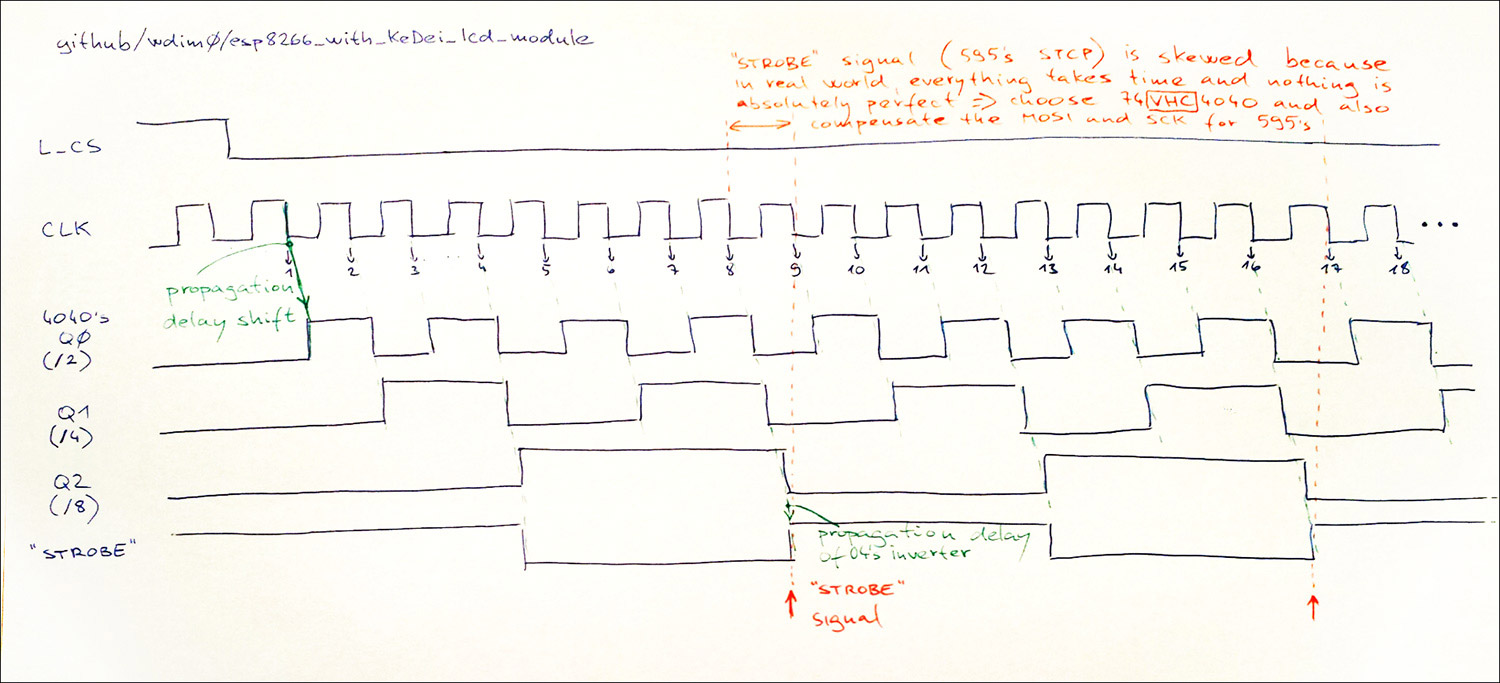 github/wdim0/esp8266_with_KeDei_lcd_module
"STROBE" signal (595's STCP) is skewed because
in real world, everything takes time and nothing is
absolutely perfect => choose 74VHC4040 and also
compensate the MOSI and SCK for 595's
L_CS
CLK
...
1 2 3 4 5 6 7 8 9 10 11 12 13 14 15 16 17 18
propagation
delay shift
4040's
Q0
(/2)
Q1
(/4)
Q2
(/8)
"STROBE"
propagation delay
of 04's inverter
"STROBE"
signal